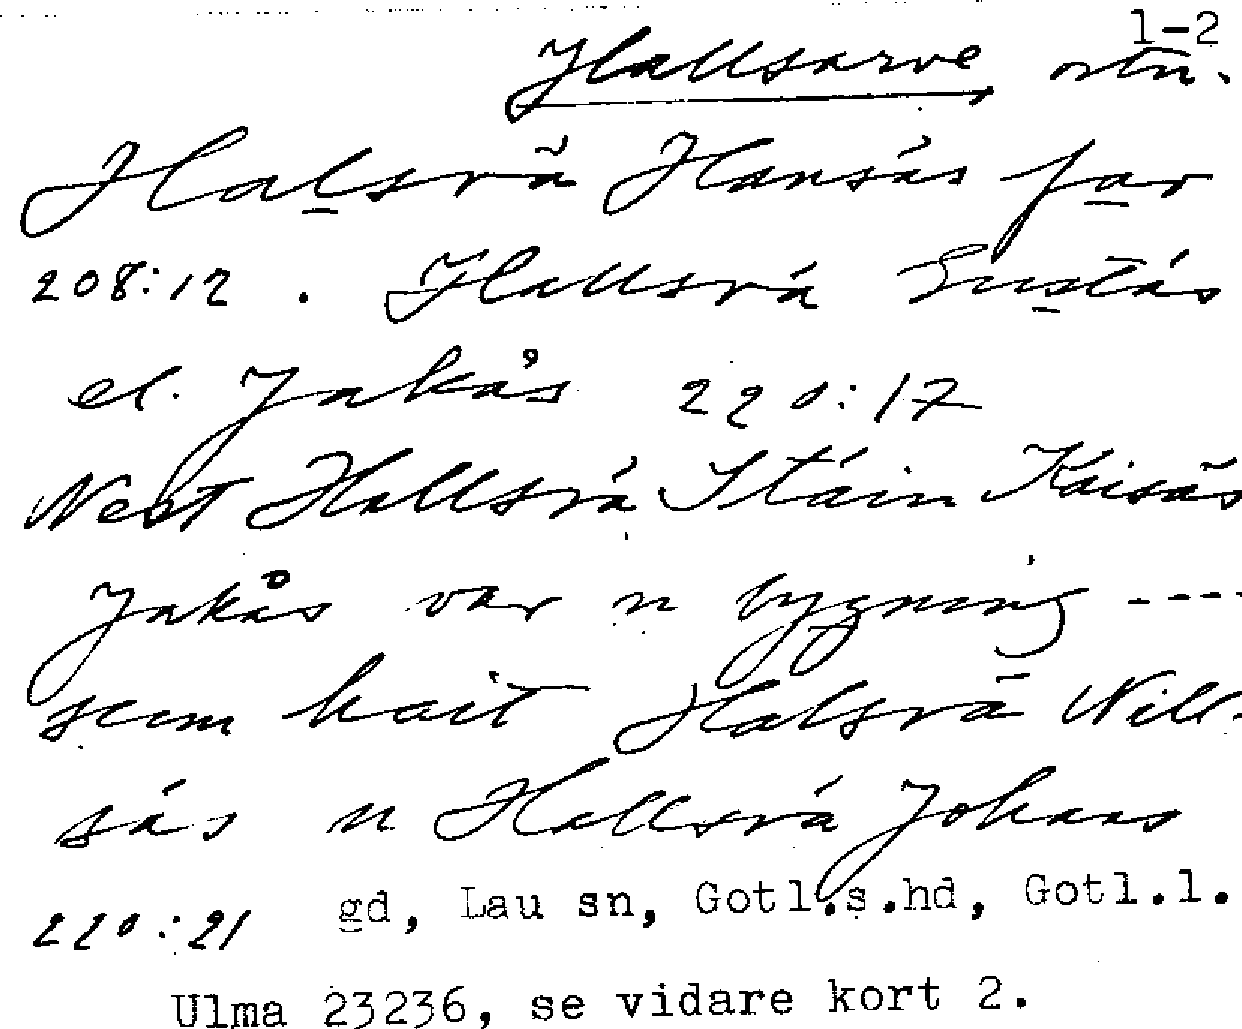 1-2
Hallsarve ortn.
Halsrā Hansás far
208:12. Hallsrá Gustás
el. Jakås 220:17
Nest Hallsrá Stáin Kaisās
Jakås var n bygning ----
sem hait Halsrā Nill-
sás n Hallsrá Johans
220:21 gd, Lau sn, Gotl.s.hd, Gotl.l.
Ulma 23236, se vidare kort 2.